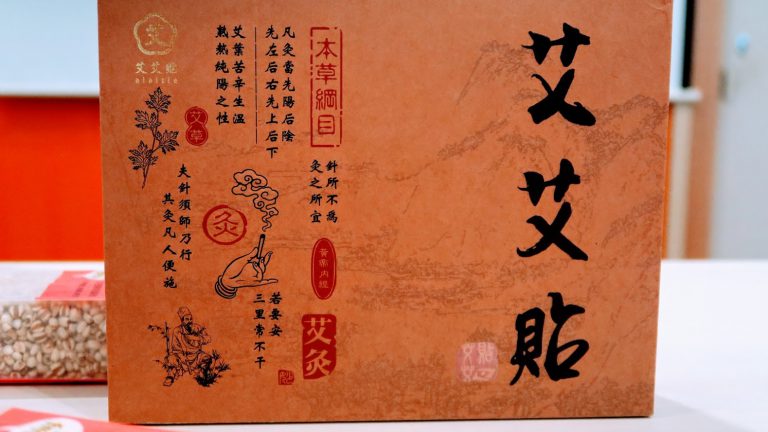 艾艾貼
本草綱目
凡灸當先陽后陰
先左后右先上后下
艾葉苦辛生溫
熟熱純陽之性
艾艾貼
aiaitie
艾草
針所不為
灸之所宜
黃帝內經
灸
夫針須師乃行
其灸凡人便施
若要安
三里常不干
艾灸